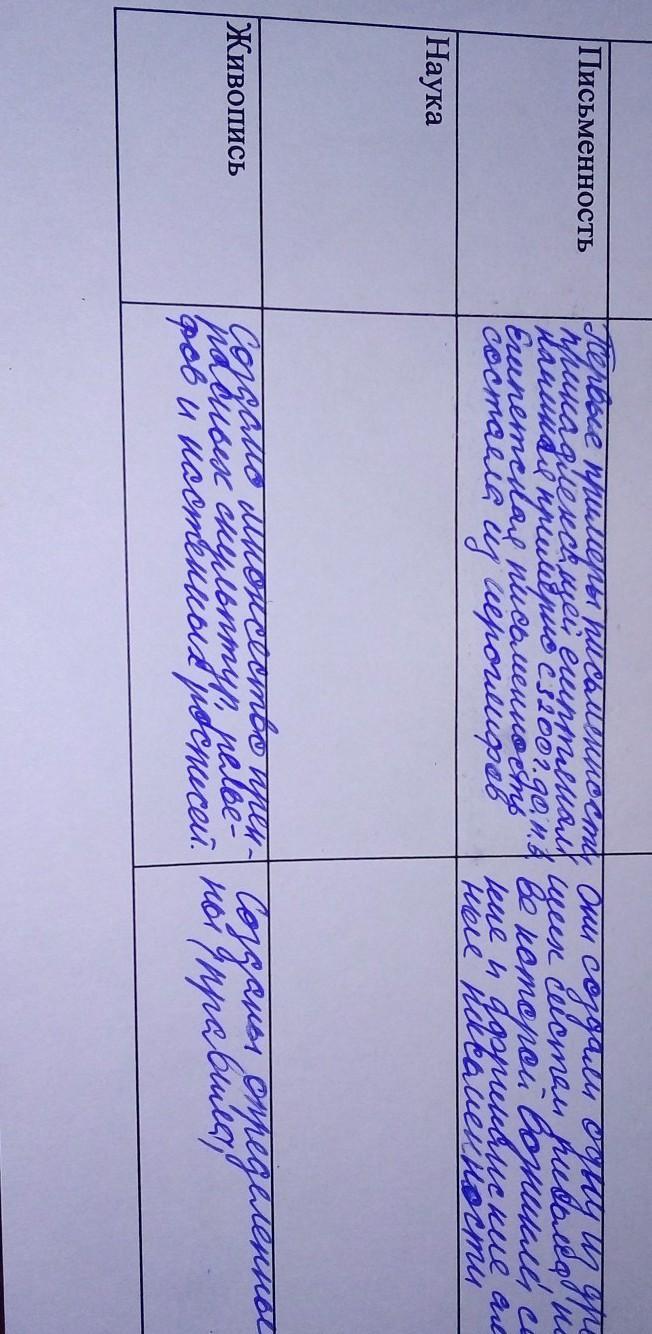 Письменность
Первые примеры письменности,
принадлежащей египтянам,
начиная примерно с 3200 г. до н.э
Египетская письменность
состояла из иероглифов
Они создали одну из
систем
ве которой возникли
ние и финикийские
ные письменности
Наука
Живопись
Создано множество прек-
расных скульптур, релье-
фов и настенных росписей.
Созданы определенны
ны (правила),